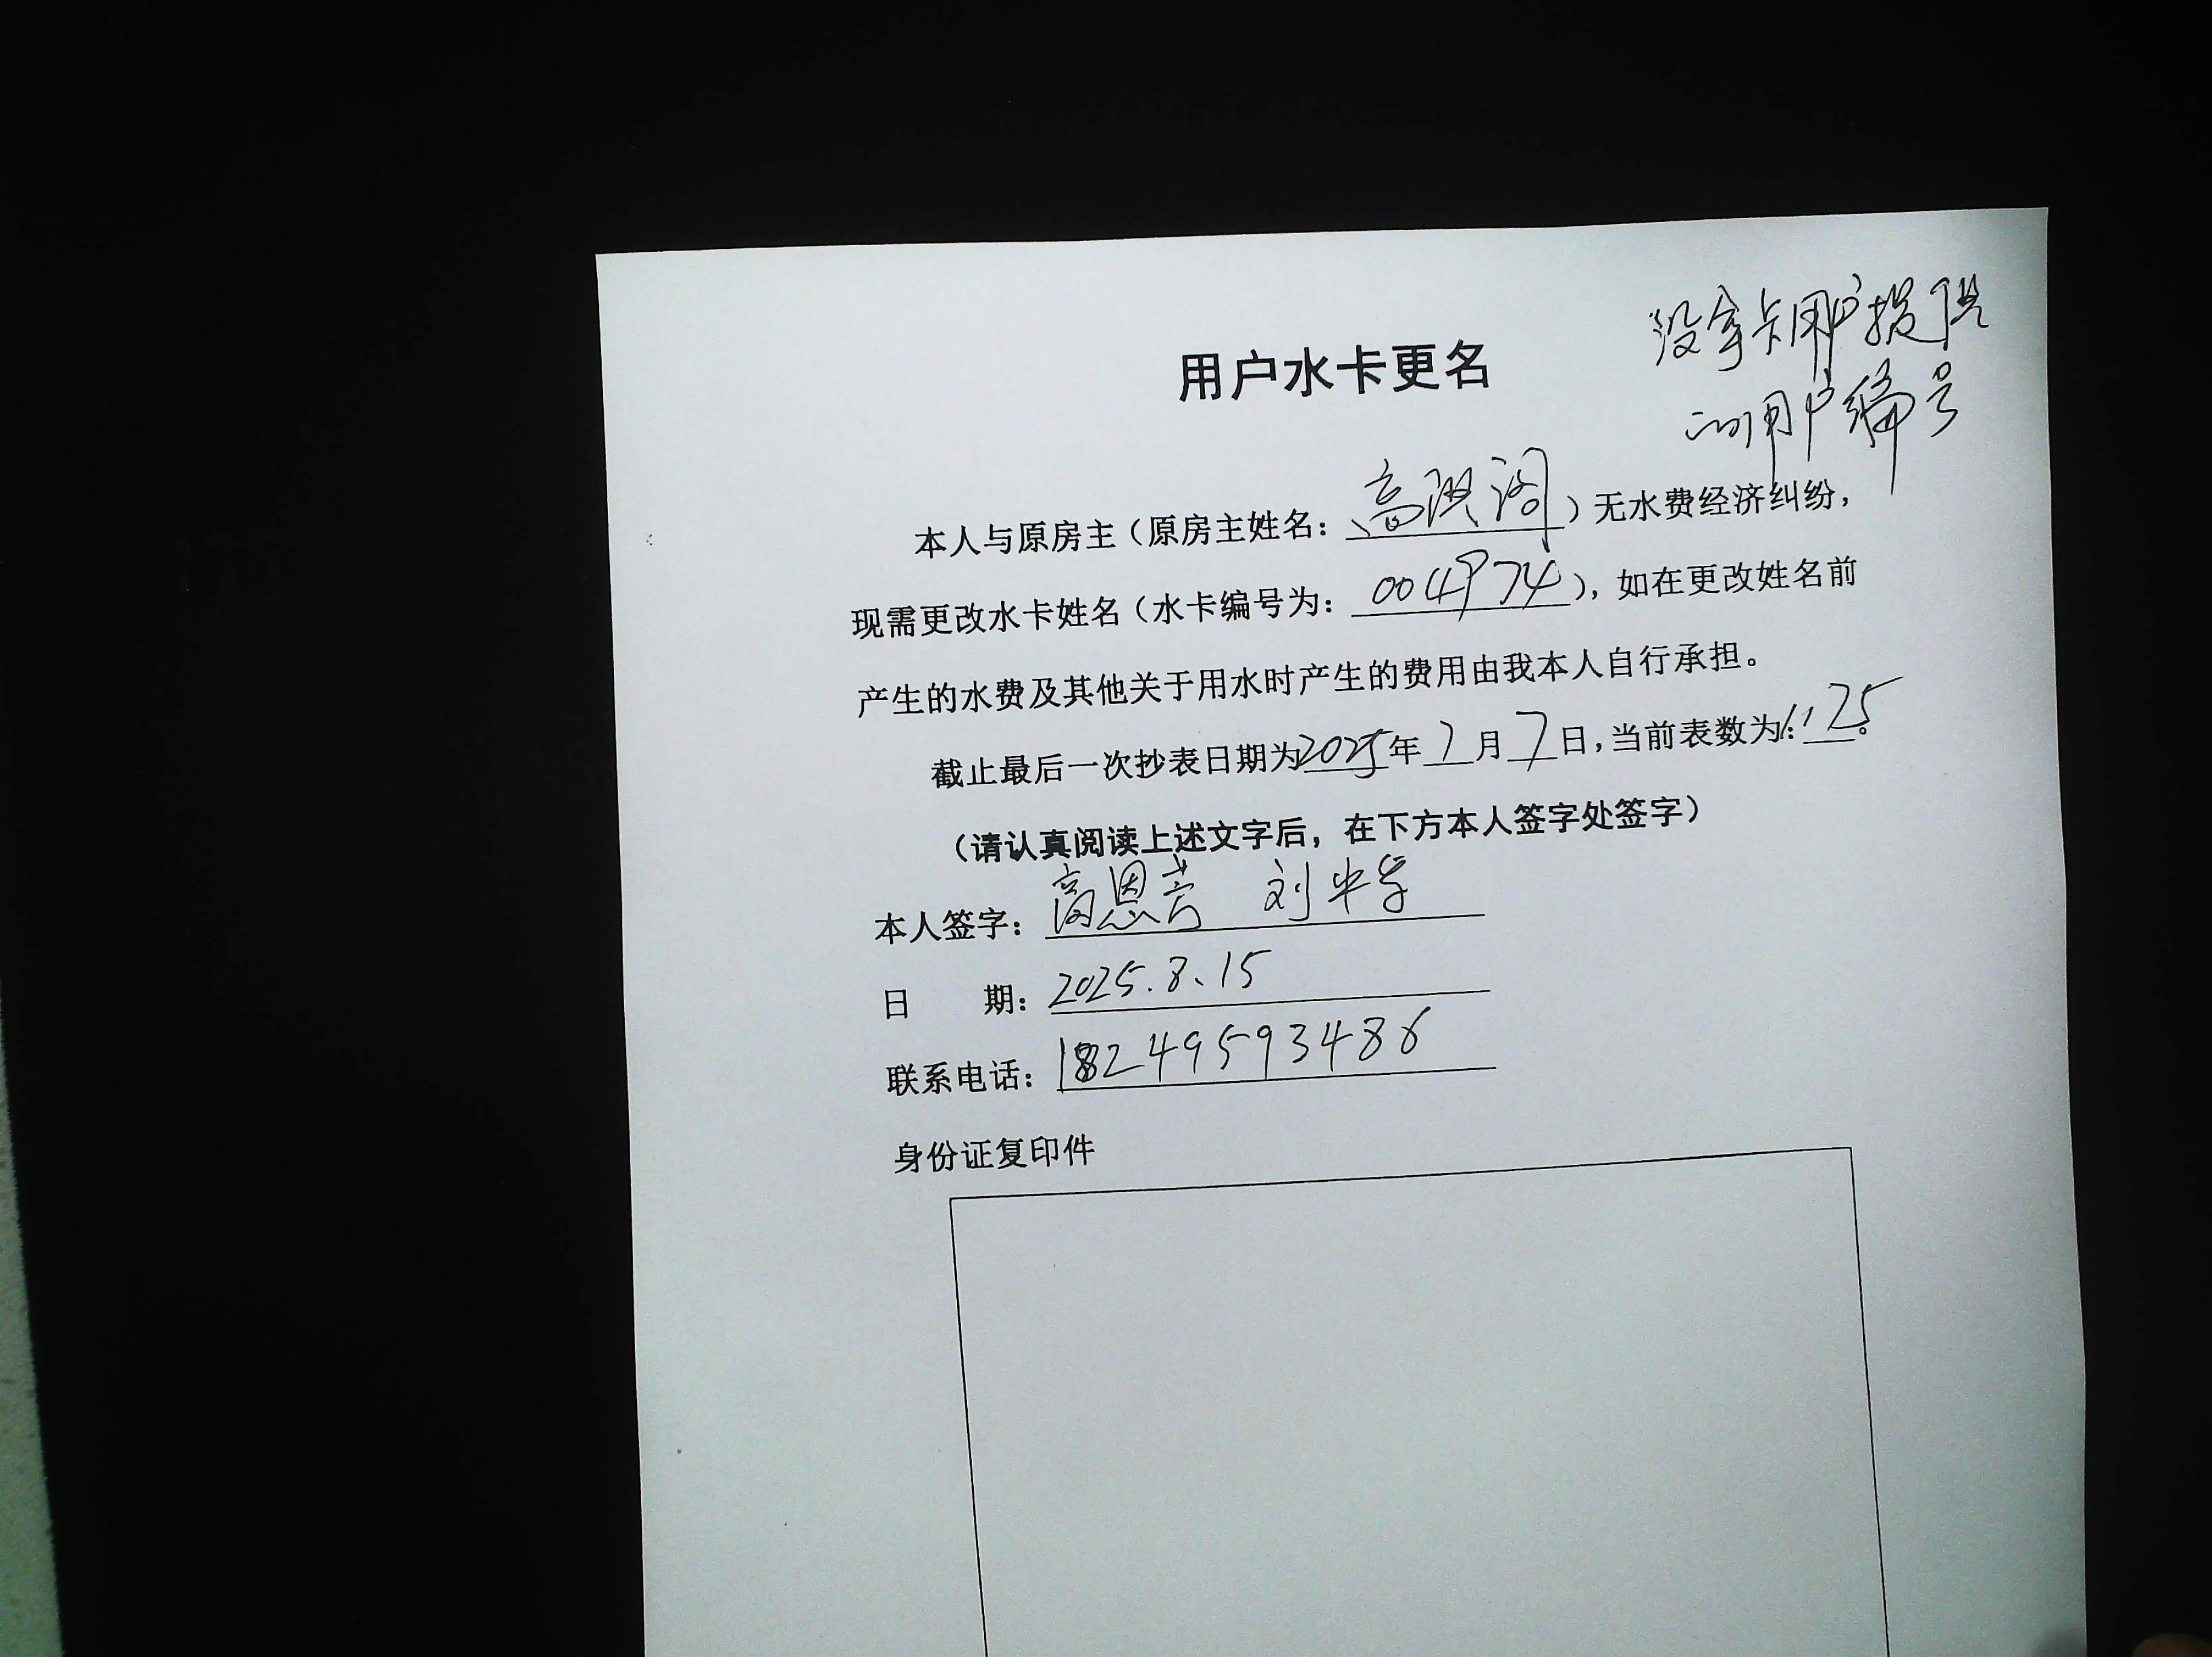 用户水卡更名
没拿卡用户提供
的用户编号
本人与原房主（原房主姓名：高改阁）无水费经济纠纷，
现需更改水卡姓名（水卡编号为：004974），如在更改姓名前
产生的水费及其他关于用水时产生的费用由我本人自行承担。
截止最后一次抄表日期为2025年7月7日，当前表数为：1125。
（请认真阅读上述文字后，在下方本人签字处签字）
本人签字：高恩芳 刘
日 期：2025.8.15
联系电话：18249593486
身份证复印件